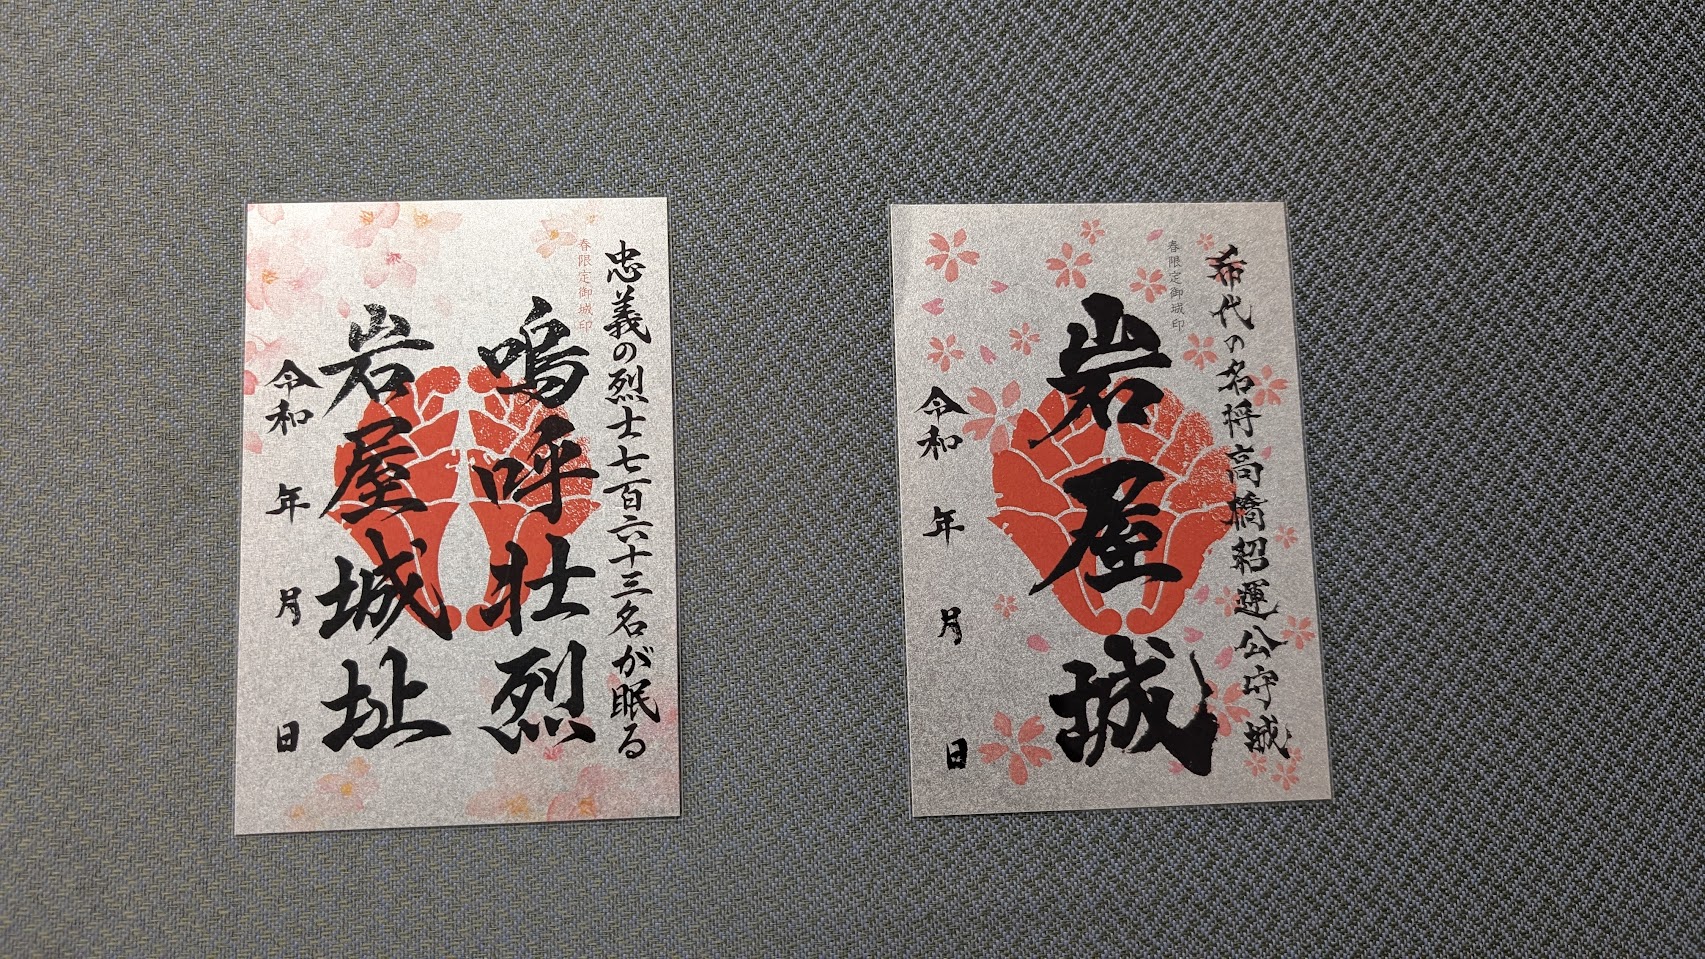 忠義の烈士七百六十三名が眠る
春限定御城印
嗚呼壮烈
岩屋城址
令和 年 月 日
希代の名将高橋紹運公守城
春限定御城印
岩屋城
令和 年 月 日